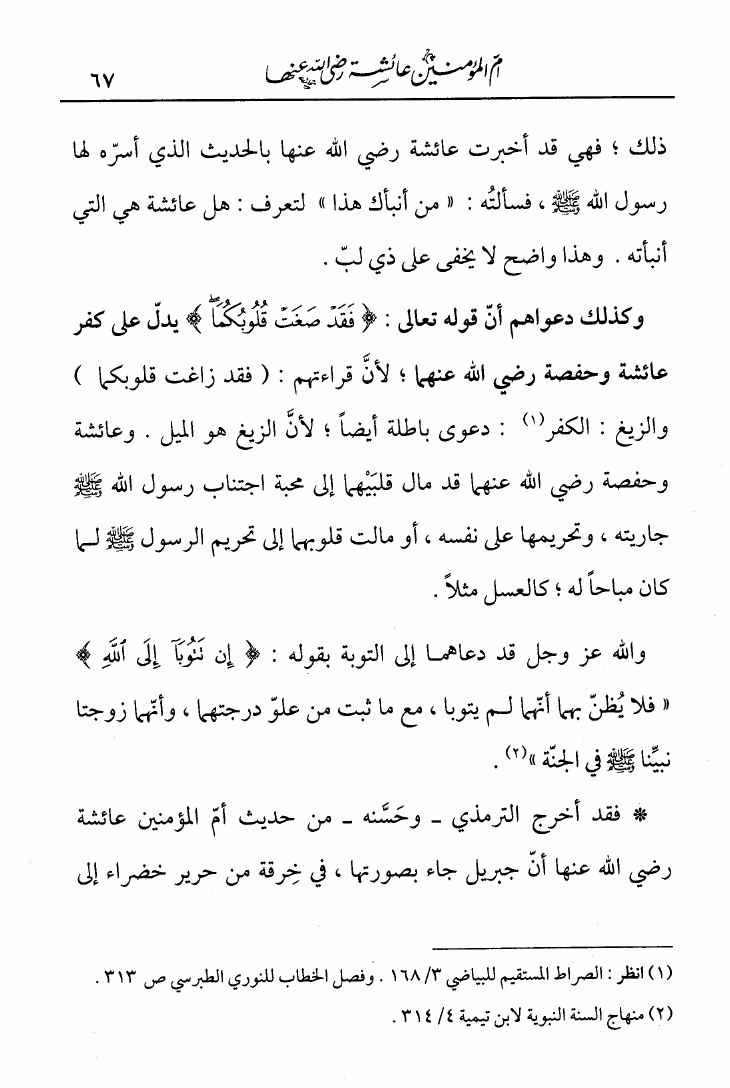 أم المؤمنين عائشة رضي الله عنها ٦٧
ذلك ؛ فهي قد أخبرت عائشة رضي الله عنها بالحديث الذي أسرّه لها
رسول الله ﷺ ، فسألتُه : « من أنبأك هذا » لتعرف : هل عائشة هي التي
أنبأته . وهذا واضح لا يخفى على ذي لبّ .
وكذلك دعواهم أنّ قوله تعالى : ﴿ فَقَدْ صَغَتْ قُلُوبُكُمَا ۖ ﴾ يدلّ على كفر
عائشة وحفصة رضي الله عنهما ؛ لأنَّ قراءتهم : ( فقد زاغت قلوبكما )
والزيغ : الكفر(١) : دعوى باطلة أيضاً ؛ لأنَّ الزيغ هو الميل . وعائشة
وحفصة رضي الله عنهما قد مال قلبَيْهما إلى محبة اجتناب رسول الله ﷺ
جاريته ، وتحريمها على نفسه ، أو مالت قلوبهما إلى تحريم الرسول ﷺ لـما
كان مباحاً له ؛ كالعسل مثلاً .
والله عز وجل قد دعاهمـا إلى التوبة بقوله : ﴿ إِن تَتُوبَآ إِلَى ٱللَّهِ ﴾
« فلا يُظنّ بهما أنّهما لـم يتوبا ، مع ما ثبت من علوّ درجتهما ، وأنّهما زوجتا
نبيِّنا ﷺ في الجنّة »(٢) .
* فقد أخرج الترمذي ـ وحَسَّنه ـ من حديث أمّ المؤمنين عائشة
رضي الله عنها أنّ جبريل جاء بصورتها ، في خِرقة من حرير خضراء إلى
(١) انظر : الصراط المستقيم للبياضي ٣/ ١٦٨ . وفصل الخطاب للنوري الطبرسي ص ٣١٣ .
(٢) منهاج السنة النبوية لابن تيمية ٤/ ٣١٤ .